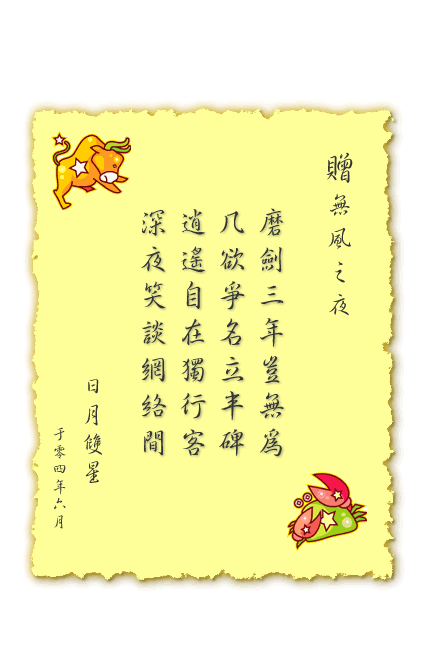 贈無風之夜
磨劍三年豈無為
几欲爭名立丰碑
逍遙自在獨行客
深夜笑談網络間
日月雙星
于零四年六月